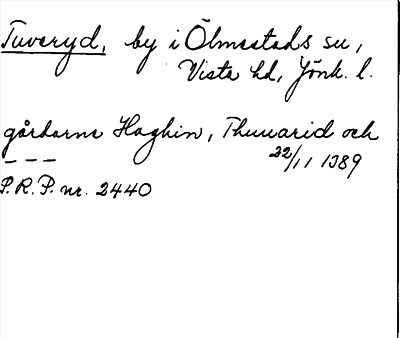 Tuveryd, by i Ölmestads sn,
Vista hd, Jönk. l.
gårdarne Haghin, Thuuarid och
- - - 22/11 1389
P.R.P. nr. 2440